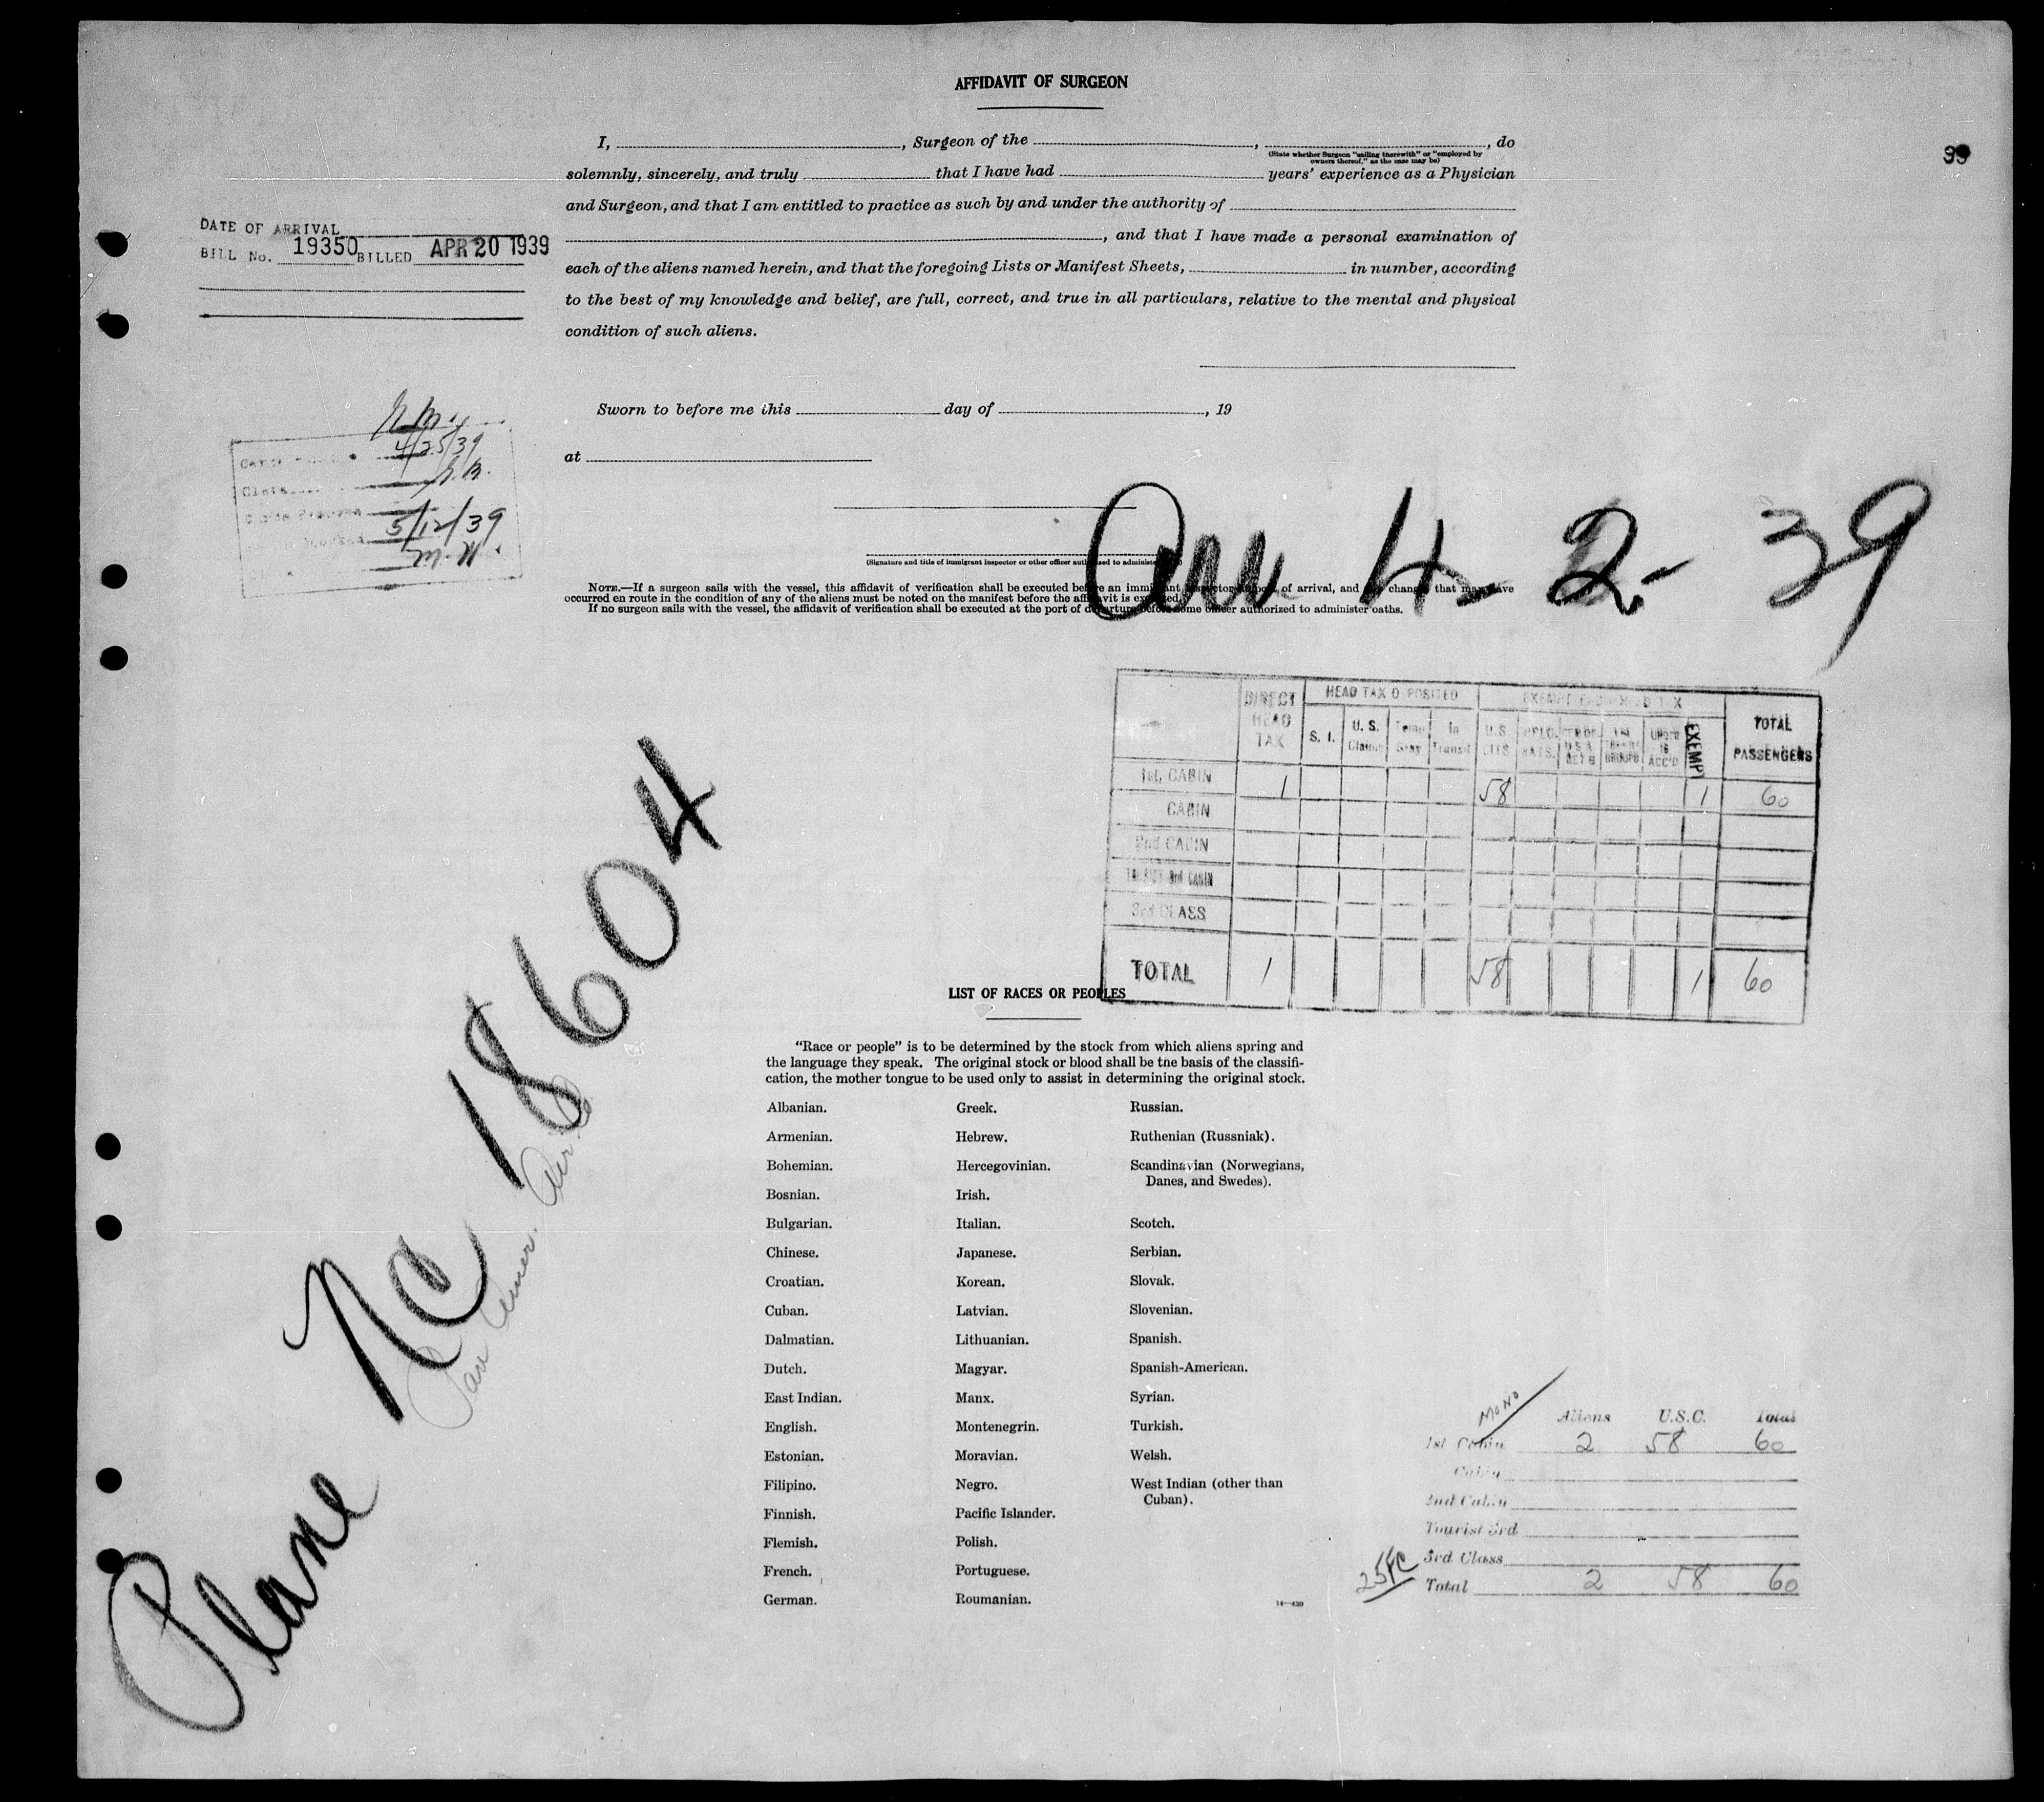 AFFIDAVIT OF SURGEON
I, , Surgeon of the , , do
(State whether Surgeon "sailing therewith" or "employed by
owners thereof," as the case may be)
solemnly, sincerely, and truly that I have had years' experience as a Physician
and Surgeon, and that I am entitled to practice as such by and under the authority of
, and that I have made a personal examination of
each of the aliens named herein, and that the foregoing Lists or Manifest Sheets, in number, according
to the best of my knowledge and belief, are full, correct, and true in all particulars, relative to the mental and physical
condition of such aliens.
DATE OF ARRIVAL
BILL No. 19350 BILLED APR 20 1939
Sworn to before me this day of , 19
at
4/25/39
5/12/39
Arr 4-2-39
(Signature and title of immigrant inspector or other officer authorized to administer
NOTE.—If a surgeon sails with the vessel, this affidavit of verification shall be executed before an immigrant inspector of arrival, and change that may have
occurred en route in the condition of any of the aliens must be noted on the manifest before the affidavit is executed.
If no surgeon sails with the vessel, the affidavit of verification shall be executed at the port of departure before some officer authorized to administer oaths.
DIRECT HEAD TAX
HEAD TAX DEPOSITED
S. I. U. S. Claims Temp Stay In Transit
U.S. CITS
UNDER 16 ACC'D
EXEMPT
TOTAL PASSENGERS
1st. CABIN 1 58 1 60
CABIN
2nd CABIN
TOURIST 3rd CABIN
3rd CLASS
TOTAL 1 58 1 60
Plane NC 18604
Pan Amer. Air. Co
LIST OF RACES OR PEOPLES
"Race or people" is to be determined by the stock from which aliens spring and
the language they speak. The original stock or blood shall be the basis of the classifi-
cation, the mother tongue to be used only to assist in determining the original stock.
Albanian. Greek. Russian.
Armenian. Hebrew. Ruthenian (Russniak).
Bohemian. Hercegovinian. Scandinavian (Norwegians,
Danes, and Swedes).
Bosnian. Irish.
Bulgarian. Italian. Scotch.
Chinese. Japanese. Serbian.
Croatian. Korean. Slovak.
Cuban. Latvian. Slovenian.
Dalmatian. Lithuanian. Spanish.
Dutch. Magyar. Spanish-American.
East Indian. Manx. Syrian.
English. Montenegrin. Turkish.
Estonian. Moravian. Welsh.
Filipino. Negro. West Indian (other than
Cuban).
Finnish. Pacific Islander.
Flemish. Polish.
French. Portuguese.
German. Roumanian.
14—430
Aliens U.S.C. Total
1st Cabin 2 58 60
Cabin
2nd Cabin
Tourist 3rd
3rd Class
Total 2 58 60